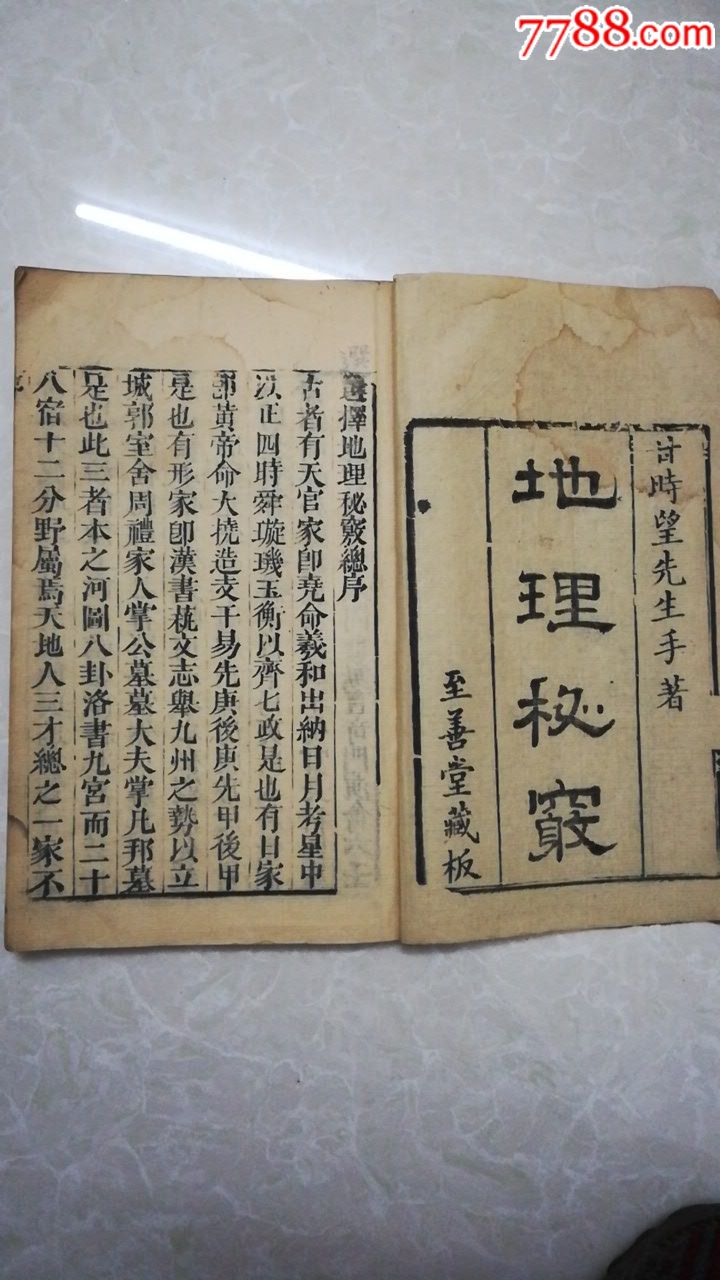 7788.com
甘時望先生手著
地理秘竅
至善堂藏板
選擇地理秘竅總序
古者有天官家卽堯命羲和出納日月考星中
以正四時舜璇璣玉衡以齊七政是也有日家
卽黃帝命大撓造支干易先庚後庚先甲後甲
是也有形家卽漢書藝文志舉九州之勢以立
城郭室舍周禮家人掌公墓墓大夫掌凡邦墓
是也此三者本之河圖八卦洛書九宮而二十
八宿十二分野屬焉天地人三才總之一家不